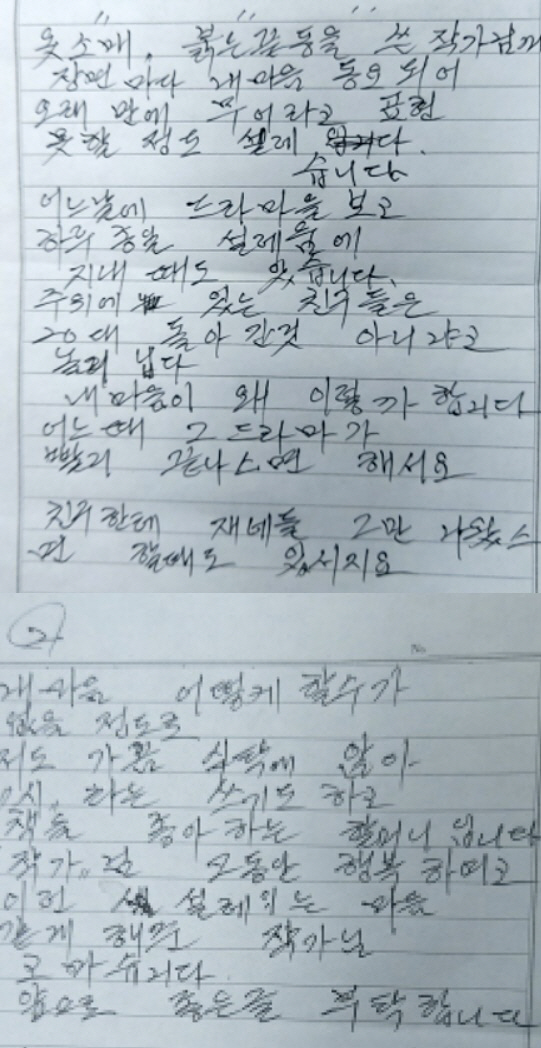 옷소매, 붉은끝동을 쓴 작가님께
장면 마다 내마음 동요 되어
오래 만에 무어라고 표현
못할 정도 설레 입니다.
습니다
어느날에 드라마을 보고
하루 종일 설레움에
지내 때도 있습니다.
주위에 있는 친구들은
20대 돌아 간것 아니냐고
놀려 댑니다
내마음이 왜 이럴까 합니다
어느때 그 드라마가
빨리 끝나스면 해서요
친구한테 재네들 그만 나왔스
면 할때도 있시지요
2
내 마음 어떻게 할수가
없을 정도로
저도 가끔 식탁에 앉아
시. 라는 쓰기도 하고
책을 좋아 하는 할머니 입니다
작가. 님 오동안 행복 하며고
이런 설레이는 마음
같게 해준 작가님
고마습니다
앞으로 좋은글 부탁합니다